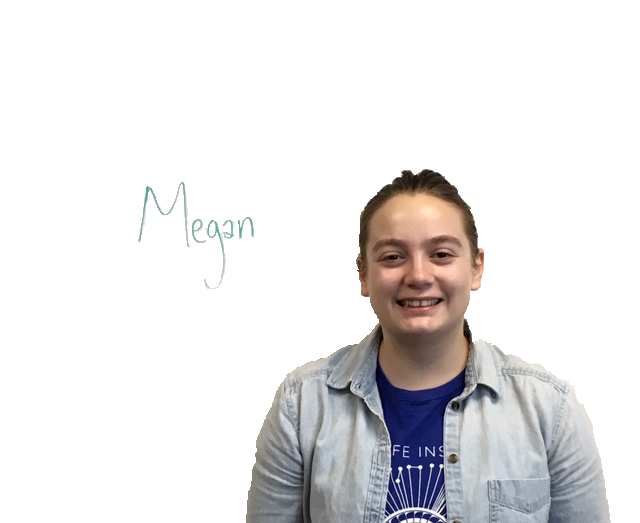 Megan
FE INS